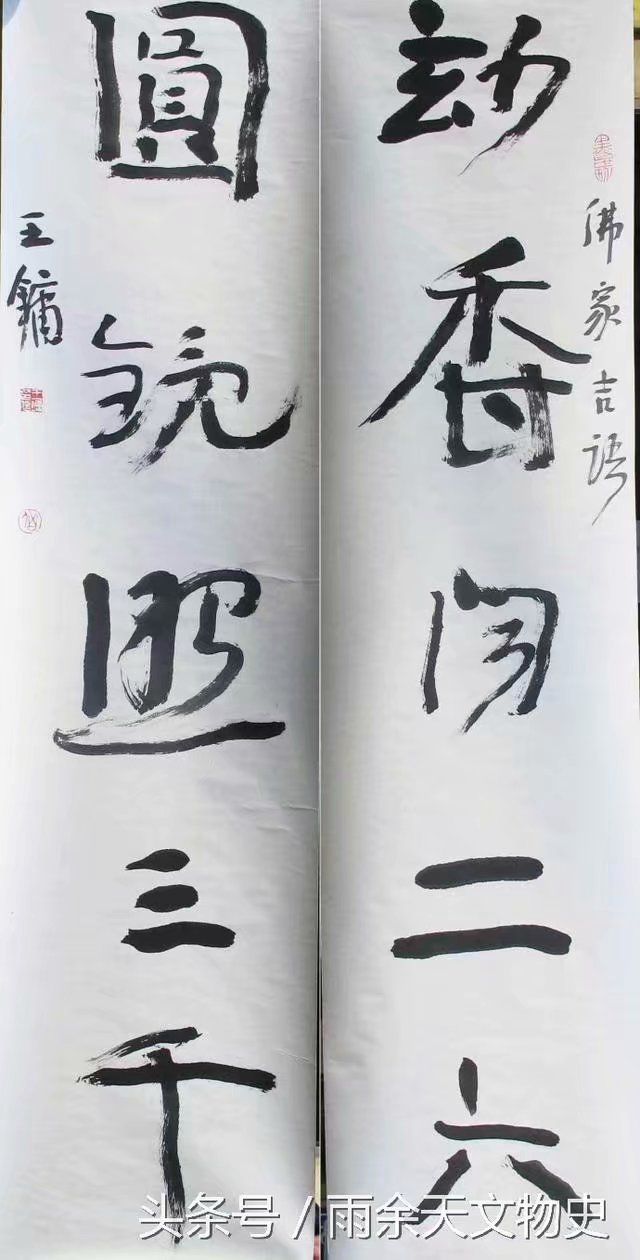 佛家吉语
玅香闻二六
圓镜照三千
王镛
头条号 / 雨余天文物史